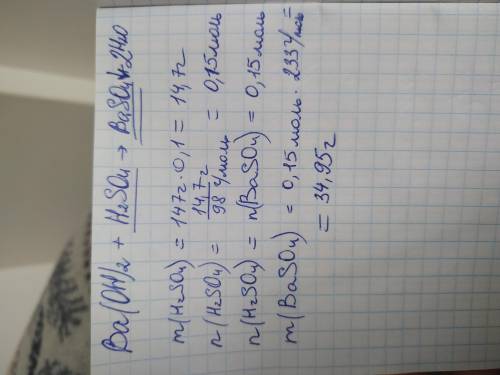 Ba(OH)₂ + H₂SO₄ → BaSO₄↓ + 2H₂O
m(H₂SO₄) = 147г · 0,1 = 14,7г
n(H₂SO₄) = 14,7г / 98 г/моль = 0,15 моль
n(H₂SO₄) = n(BaSO₄) = 0,15 моль
m(BaSO₄) = 0,15 моль · 233 г/моль =
= 34,95г